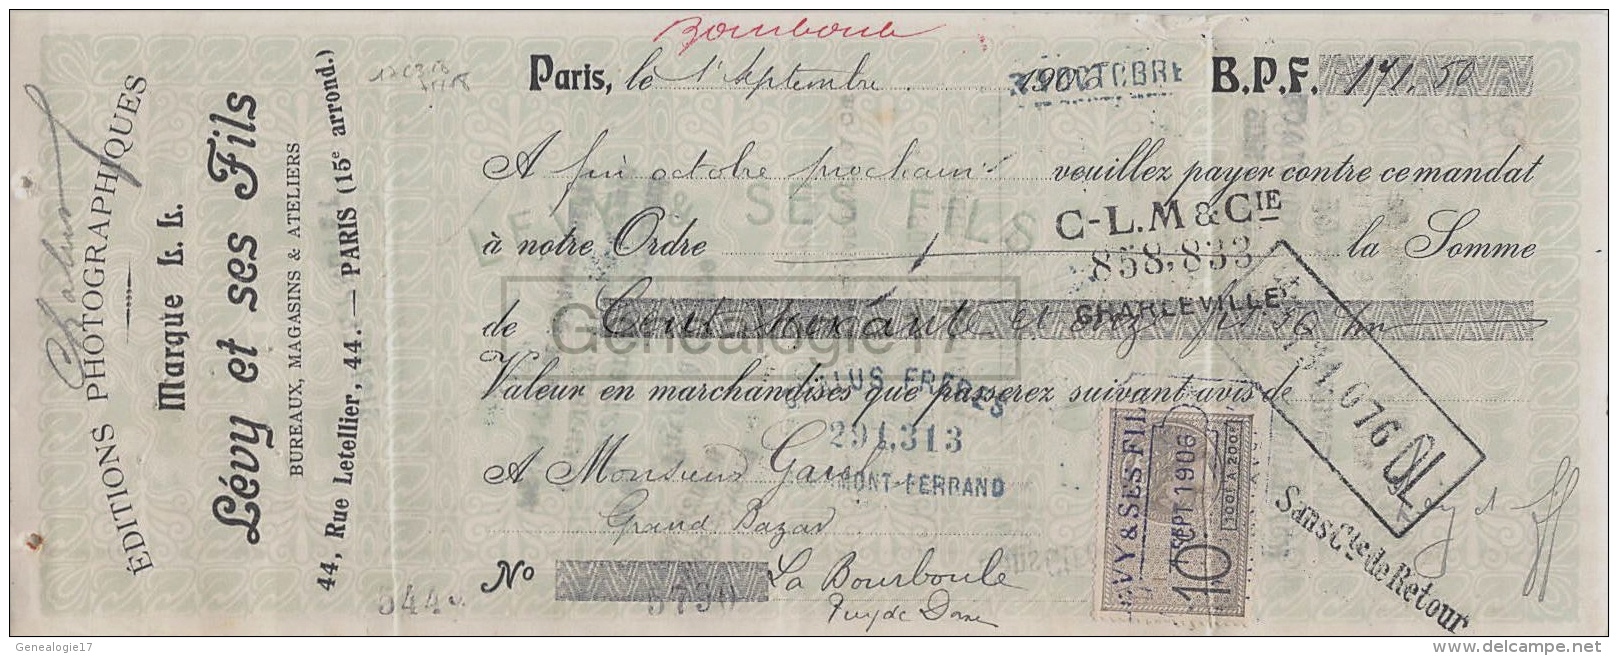 Bourboule
EDITIONS PHOTOGRAPHIQUES
Marque L. L.
Lévy et ses Fils
BUREAUX, MAGASINS & ATELIERS
44, Rue Letellier, 44. — PARIS (15e arrond.)
Paris, le 1r Septembre 190
OCTOBRE
B.P.F. 171.50
A fin octobre prochain veuillez payer contre ce mandat
LEVY & SES FILS
C-L.M & CIE
à notre Ordre la Somme
858,833
CHARLEVILLE
de Cent soixante et onze frs 50
Genealogie17
Valeur en marchandises que passerez suivant avis de
FRERES
291,313
MONT-FERRAND
A Monsieur
Grand Bazar
No 5790 La Bourboule
Puy de Dome
844
LEVY & SES FILS
1 SEPT 1906
10c
100F A 200F
.076 CL
Sans Cte de Retour
Genealogie17
www.delcampe.net